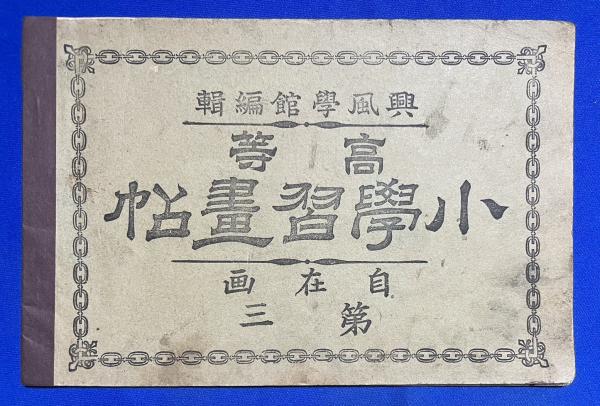 興風學館編輯
高等
小學習畫帖
自在画
第三